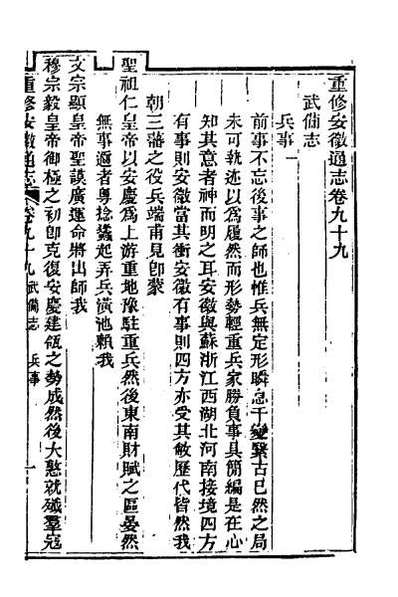 重修安徽通志卷九十九
武備志
兵事一
前事不忘後事之師也惟兵無定形瞬息千變緊古已然之局
未可執迹以爲履然而形勢輕重兵家勝負事具簡編是在心
知其意者神而明之耳安徽與蘇浙江西湖北河南接境四方
有事則安徽當其衝安徽有事則四方亦受其敝歷代皆然我
朝三藩之役兵端甫見卽蒙
聖祖仁皇帝以安慶爲上游重地豫駐重兵然後東南財賦之區晏然
無事適者粵捻蠭起弄兵潢池賴我
文宗顯皇帝聖謨廣運命將出師我
穆宗毅皇帝御極之初卽克復安慶建瓴之勢成然後大憝就殲羣寇
重修安徽通志 卷九十九 武備志 兵事 一